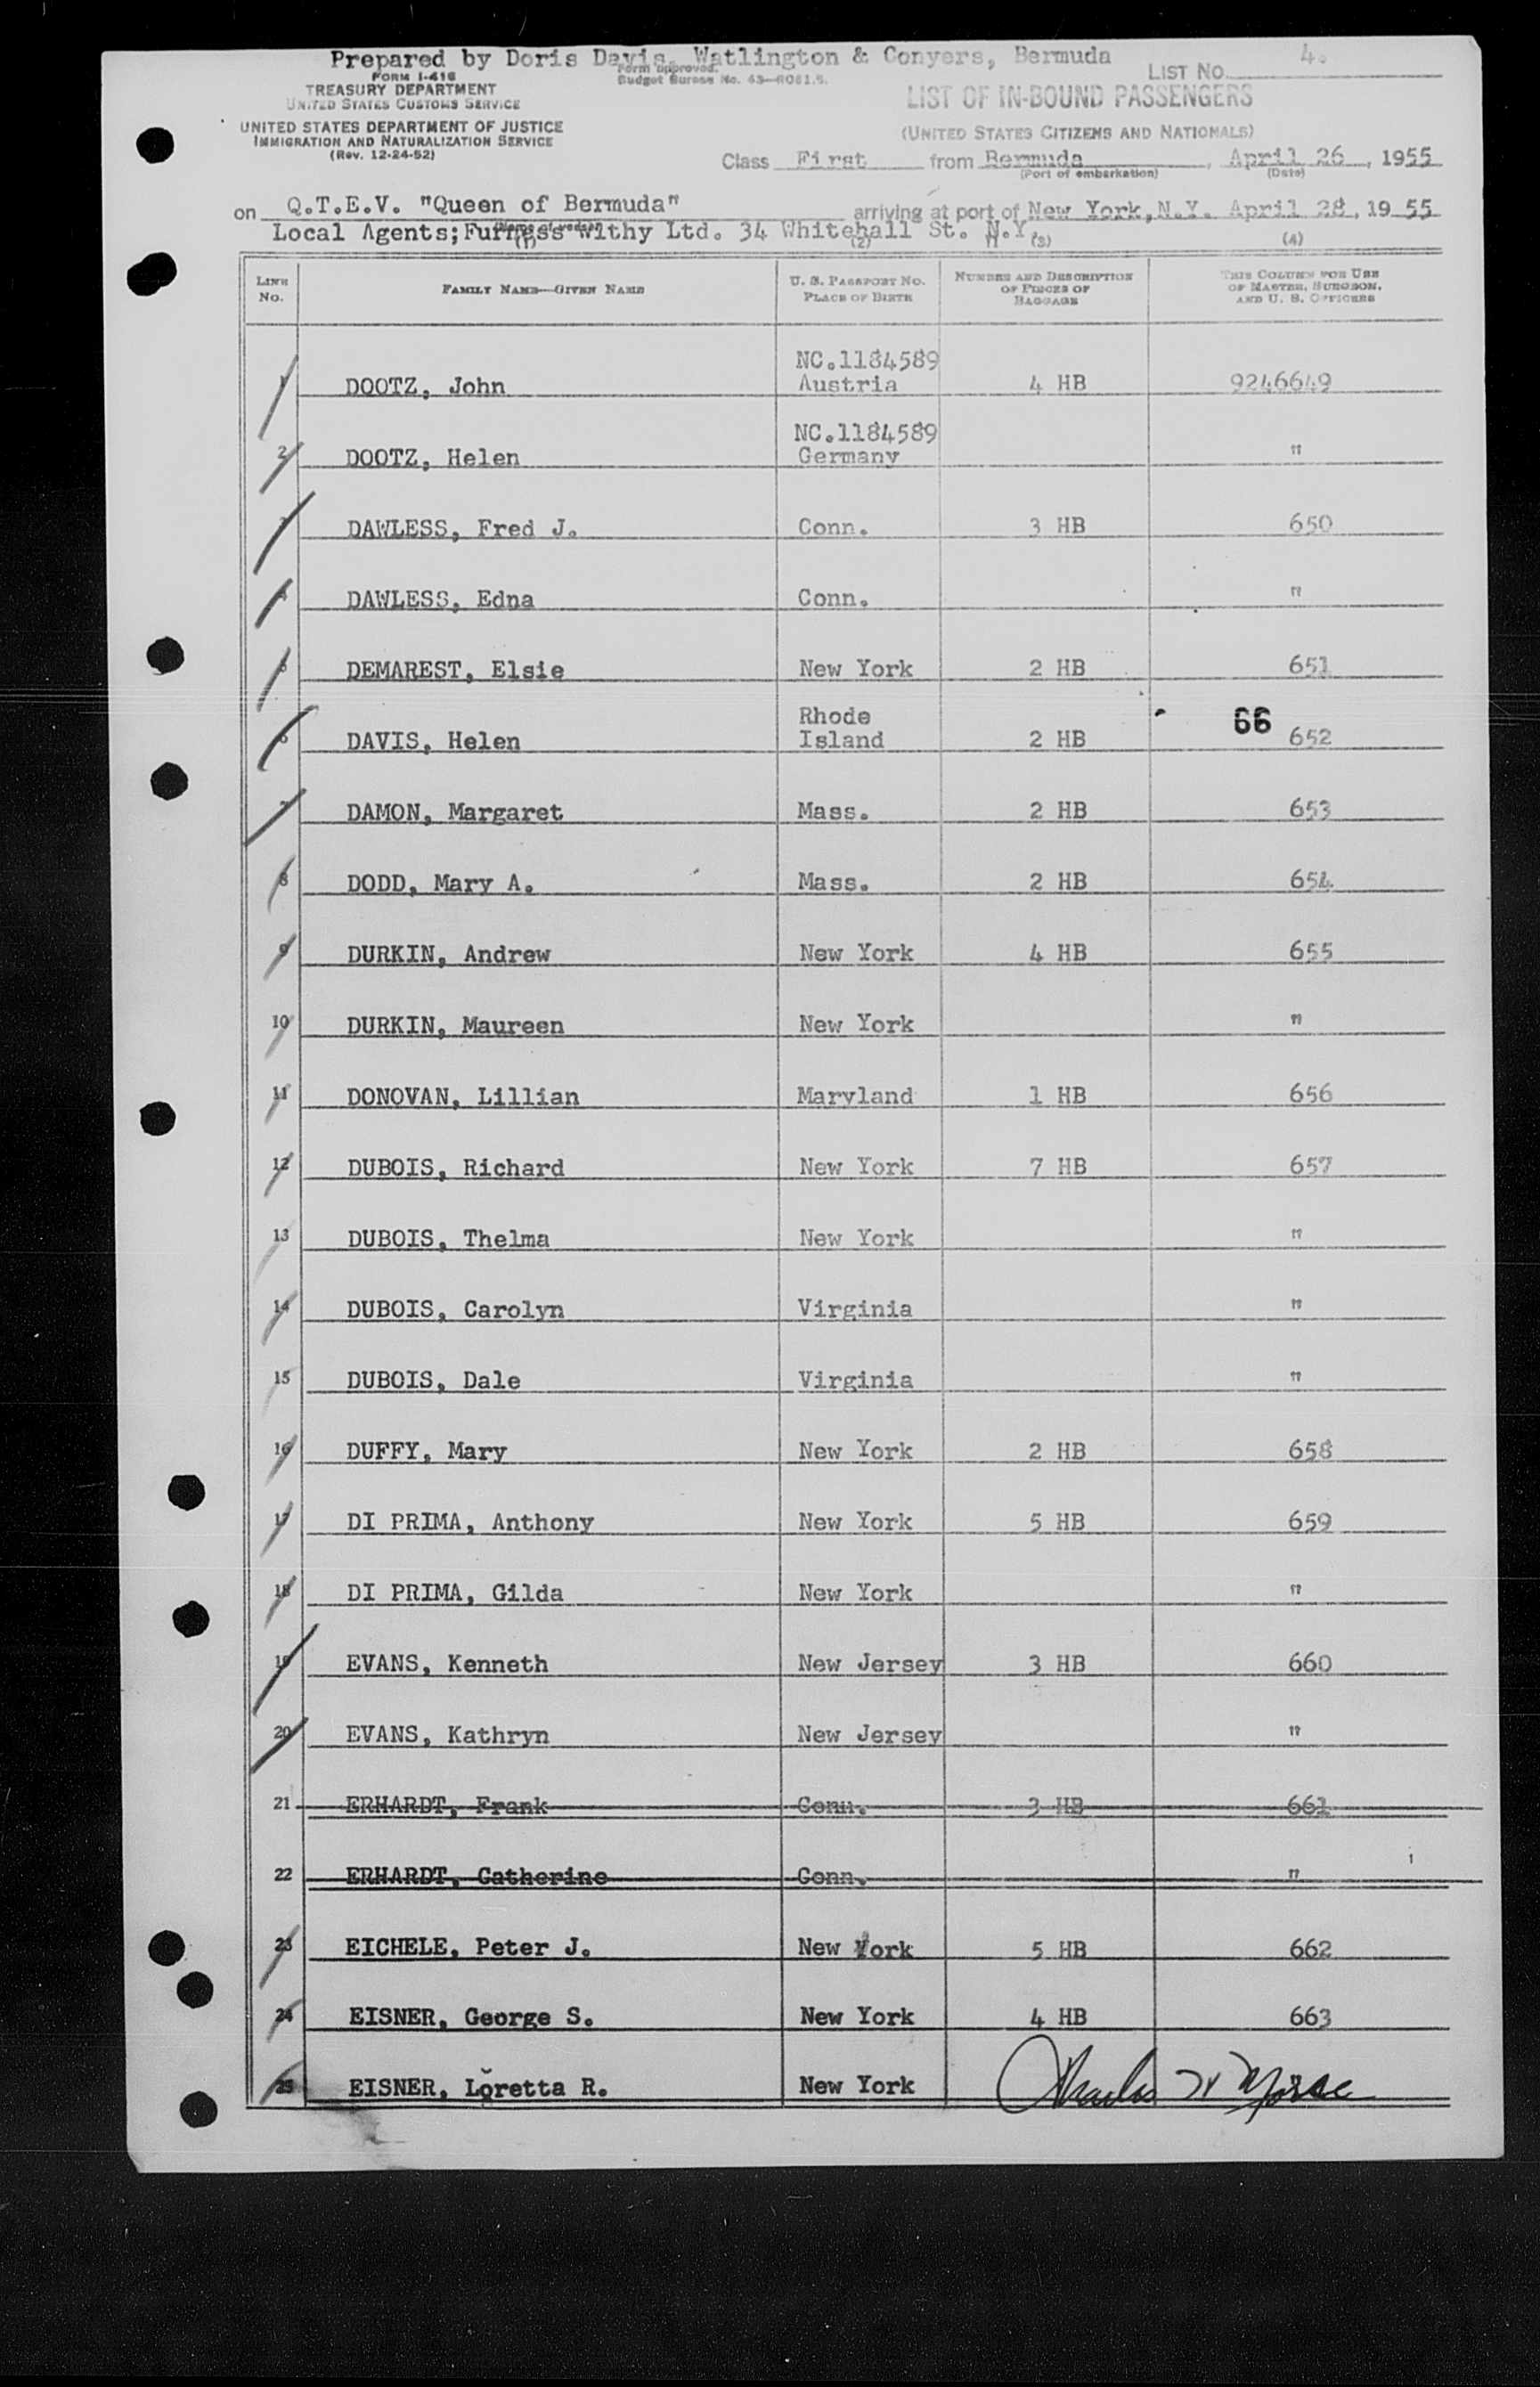 Prepared by Doris Davis, Watlington & Conyers, Bermuda
FORM I-418
TREASURY DEPARTMENT
UNITED STATES CUSTOMS SERVICE
UNITED STATES DEPARTMENT OF JUSTICE
IMMIGRATION AND NATURALIZATION SERVICE
(Rev. 12-24-52)
Form approved.
Budget Bureau No. 43-R081.5.
LIST No. 4.
LIST OF IN-BOUND PASSENGERS
(UNITED STATES CITIZENS AND NATIONALS)
Class First from Bermuda, April 26, 1955
(Port of embarkation) (Date)
on Q.T.E.V. "Queen of Bermuda" arriving at port of New York, N.Y. April 28, 1955
Local Agents; Furness Withy Ltd. 34 Whitehall St. N.Y.
(1) (2) (3) (4)
LINE No. FAMILY NAME—GIVEN NAME U. S. PASSPORT NO. PLACE OF BIRTH NUMBER AND DESCRIPTION OF PIECES OF BAGGAGE THIS COLUMN FOR USE OF MASTER, SURGEON, AND U. S. OFFICERS
NC.1184589
1 DOOTZ, John Austria 4 HB 9246649
NC.1184589
2 DOOTZ, Helen Germany "
3 DAWLESS, Fred J. Conn. 3 HB 650
4 DAWLESS, Edna Conn. "
5 DEMAREST, Elsie New York 2 HB 651
Rhode 66
6 DAVIS, Helen Island 2 HB 652
7 DAMON, Margaret Mass. 2 HB 653
8 DODD, Mary A. Mass. 2 HB 654
9 DURKIN, Andrew New York 4 HB 655
10 DURKIN, Maureen New York "
11 DONOVAN, Lillian Maryland 1 HB 656
12 DUBOIS, Richard New York 7 HB 657
13 DUBOIS, Thelma New York "
14 DUBOIS, Carolyn Virginia "
15 DUBOIS, Dale Virginia "
16 DUFFY, Mary New York 2 HB 658
17 DI PRIMA, Anthony New York 5 HB 659
18 DI PRIMA, Gilda New York "
19 EVANS, Kenneth New Jersey 3 HB 660
20 EVANS, Kathryn New Jersey "
21 ERHARDT, Frank Conn. 3 HB 661
22 ERHARDT, Catherine Conn. "
23 EICHELE, Peter J. New York 5 HB 662
24 EISNER, George S. New York 4 HB 663
25 EISNER, Loretta R. New York